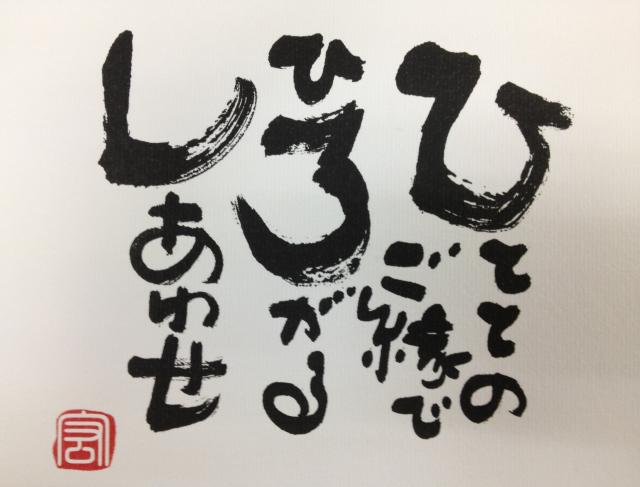 ひととの
ご縁で
ひろがる
しあわせ